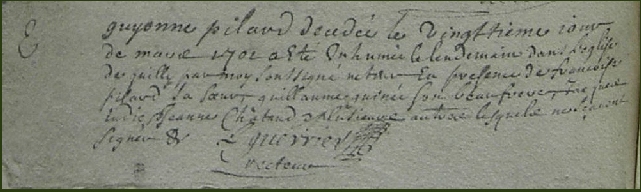 E guyonne pilard decedée le vingttieme iour
de mars 1701 a Eté Inhumée le lendemain dans l'eglise
de quilly par moy soussigné recteur En presence de francoise
pilard sa soeur guillaume guinée son beaufrere
Jeanne Chataud & plusieurs autres lesquels ne scavent
signer &
guerrier
recteur